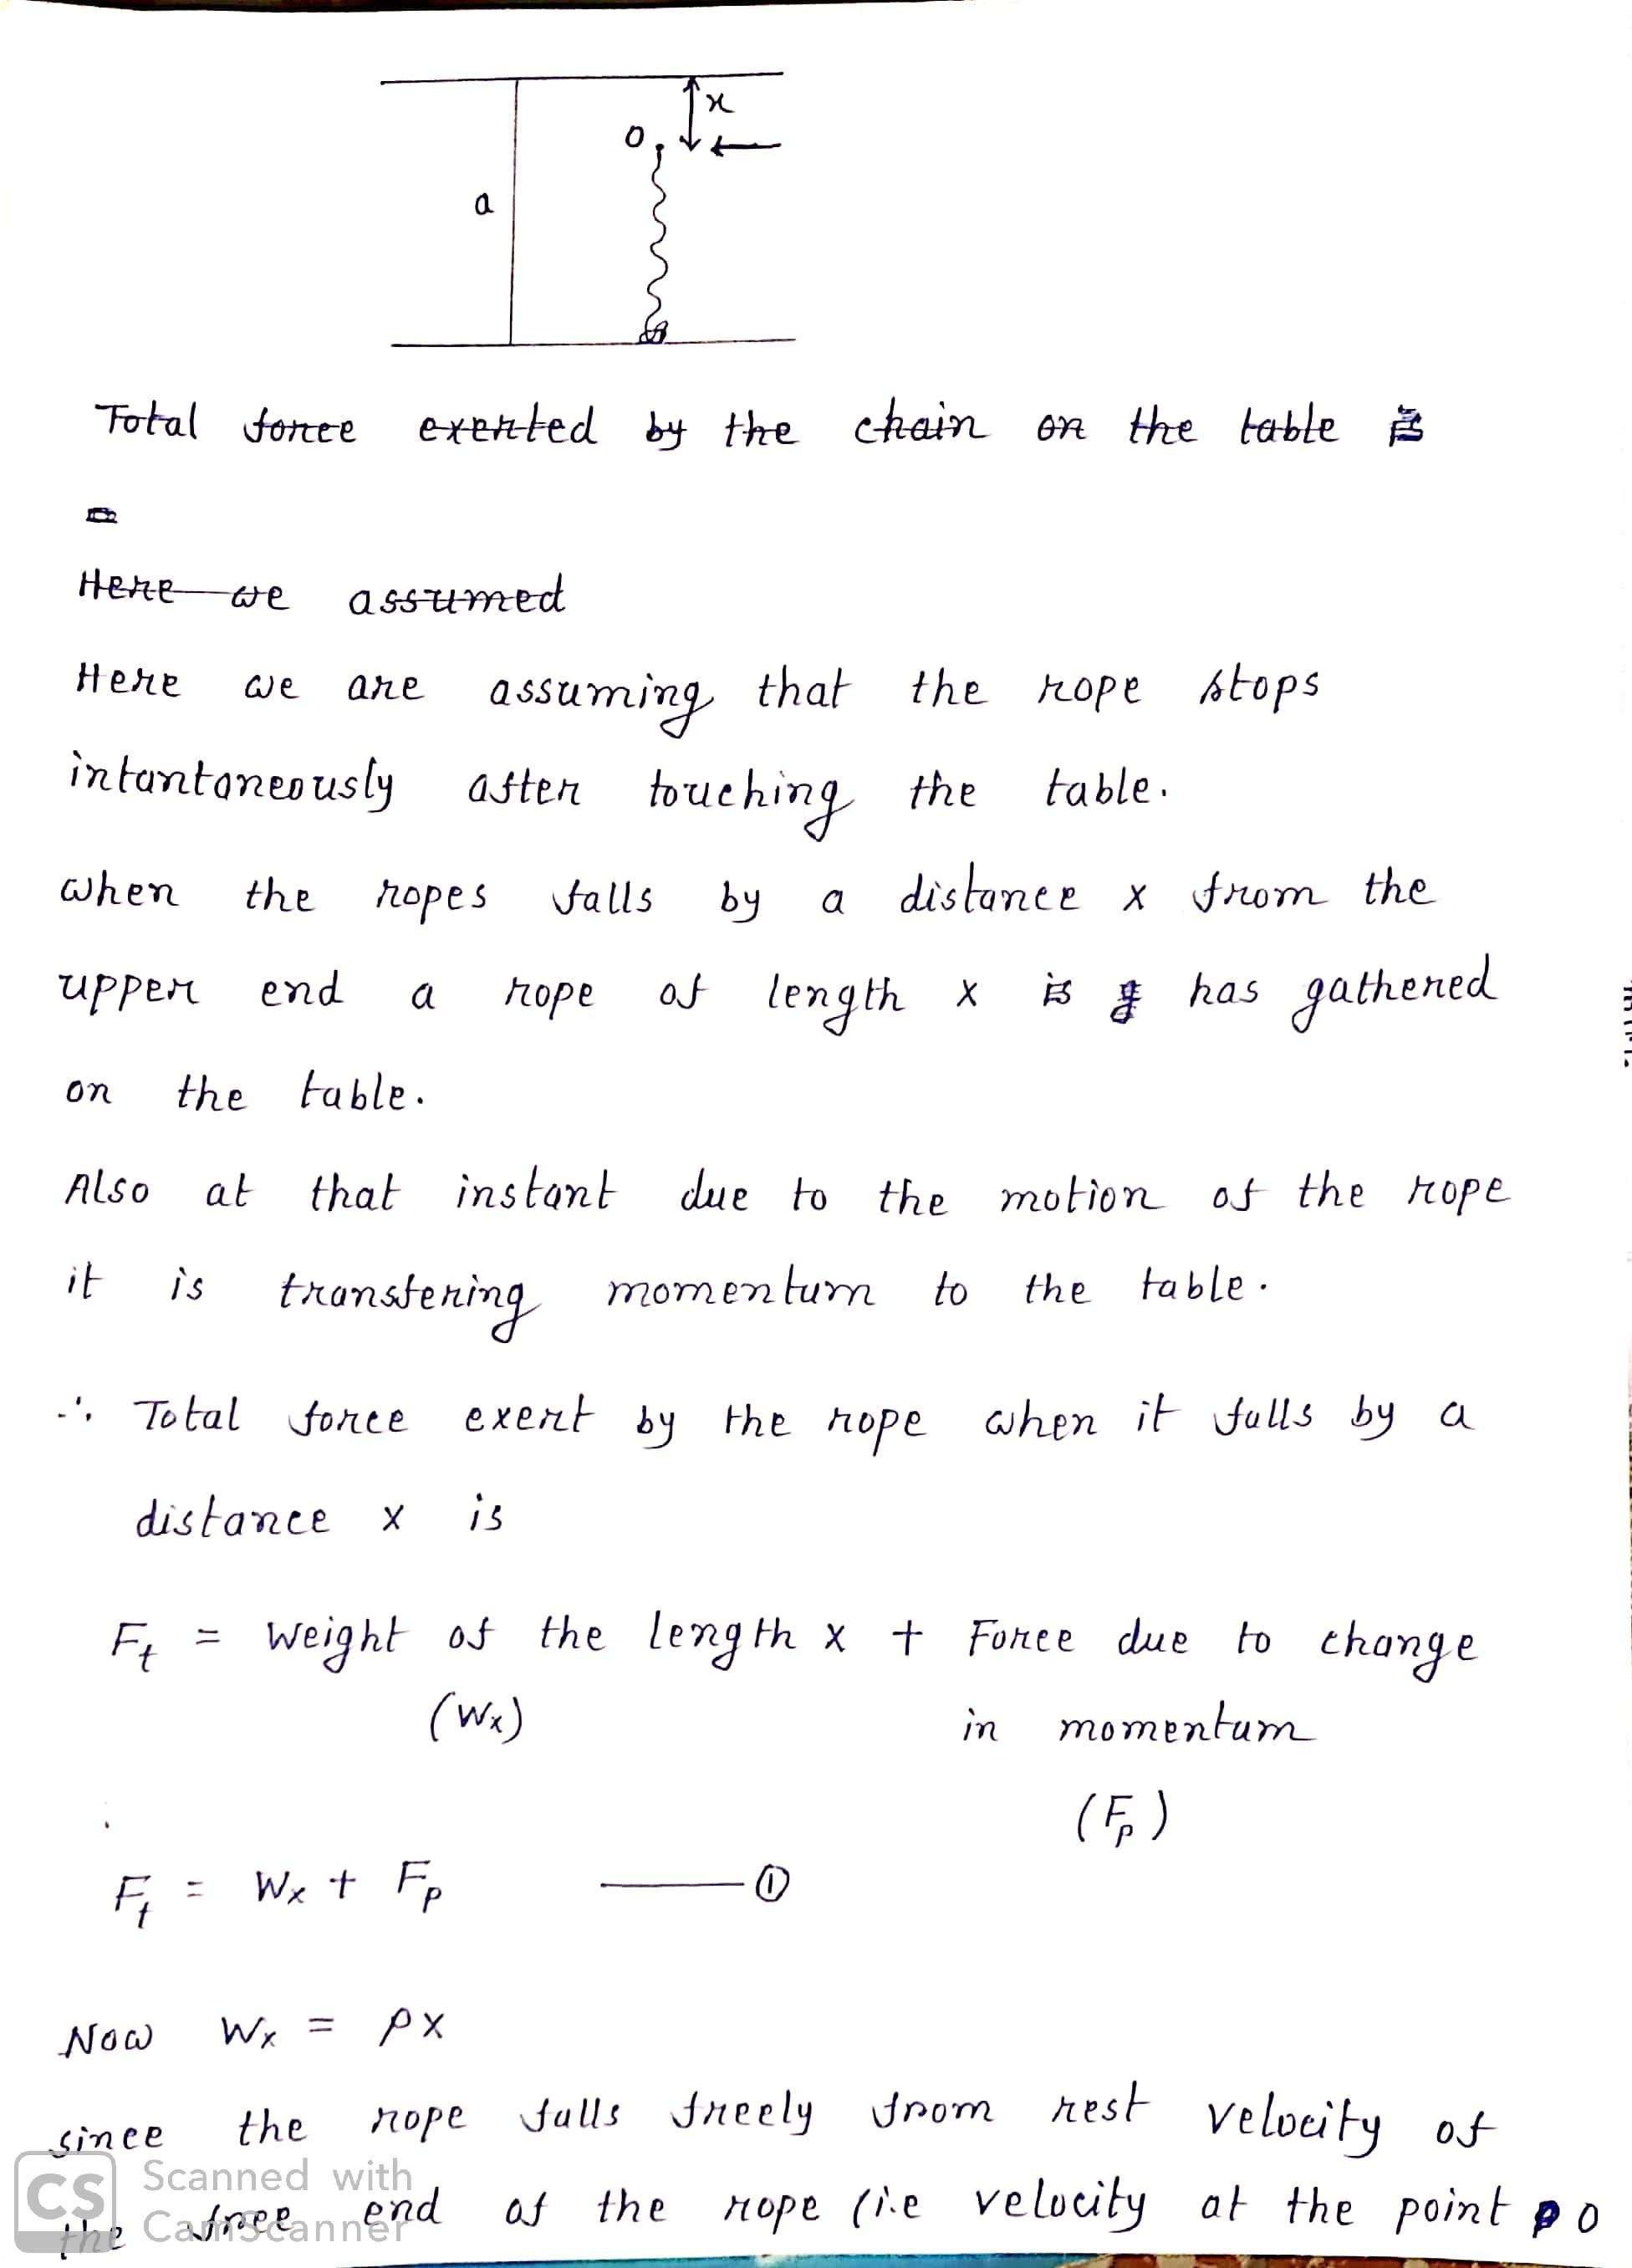 x
O
a
Total force exerted by the chain on the table is
Here we assumed
Here we are assuming that the rope stops
intantaneously after touching the table.
when the ropes falls by a distance x from the
upper end a rope of length x is g has gathered
on the table.
Also at that instant due to the motion of the rope
it is transfering momentum to the table.
∴ Total force exert by the rope when it falls by a
distance x is
Ft = Weight of the length x + Force due to change
(Wx) in momentum
(Fp)
Ft = Wx + Fp —— ①
Now Wx = ρx
since the rope falls freely from rest velocity of
the free end of the rope (i.e velocity at the point O
CS Scanned with
CamScanner